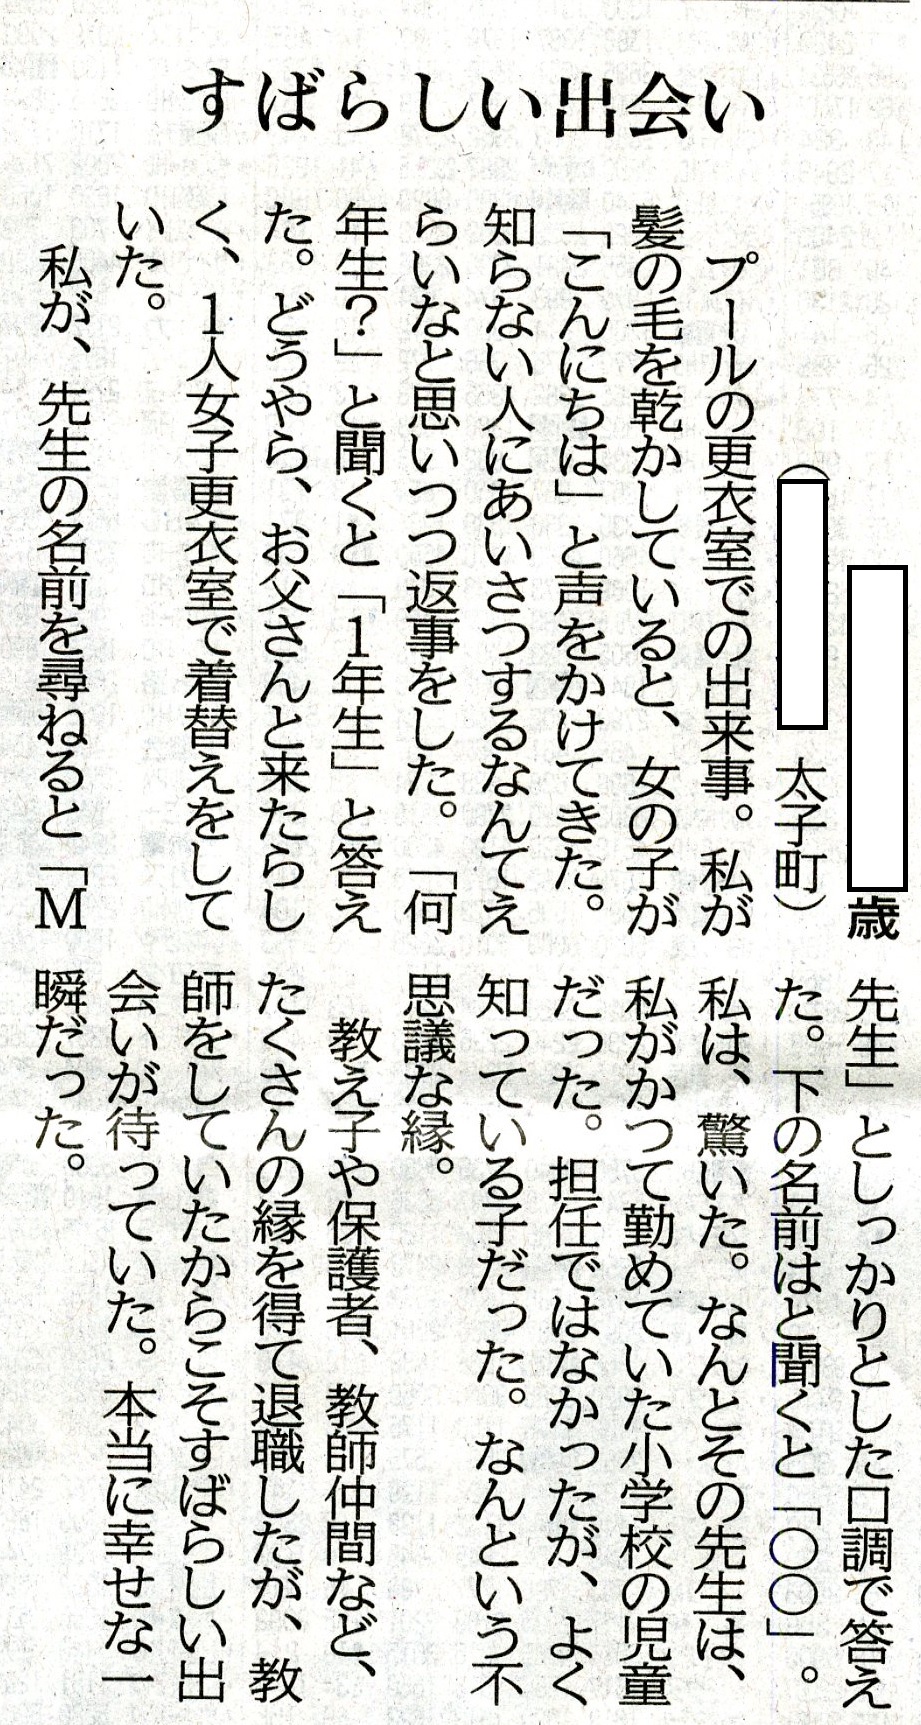 すばらしい出会い
歳
（　太子町）
　プールの更衣室での出来事。私が
髪の毛を乾かしていると、女の子が
「こんにちは」と声をかけてきた。
知らない人にあいさつするなんてえ
らいなと思いつつ返事をした。「何
年生？」と聞くと「１年生」と答え
た。どうやら、お父さんと来たらし
く、１人女子更衣室で着替えをして
いた。
　私が、先生の名前を尋ねると「Ｍ
先生」としっかりとした口調で答え
た。下の名前はと聞くと「〇〇」。
私は、驚いた。なんとその先生は、
私がかつて勤めていた小学校の児童
だった。担任ではなかったが、よく
知っている子だった。なんという不
思議な縁。
　教え子や保護者、教師仲間など、
たくさんの縁を得て退職したが、教
師をしていたからこそすばらしい出
会いが待っていた。本当に幸せな一
瞬だった。